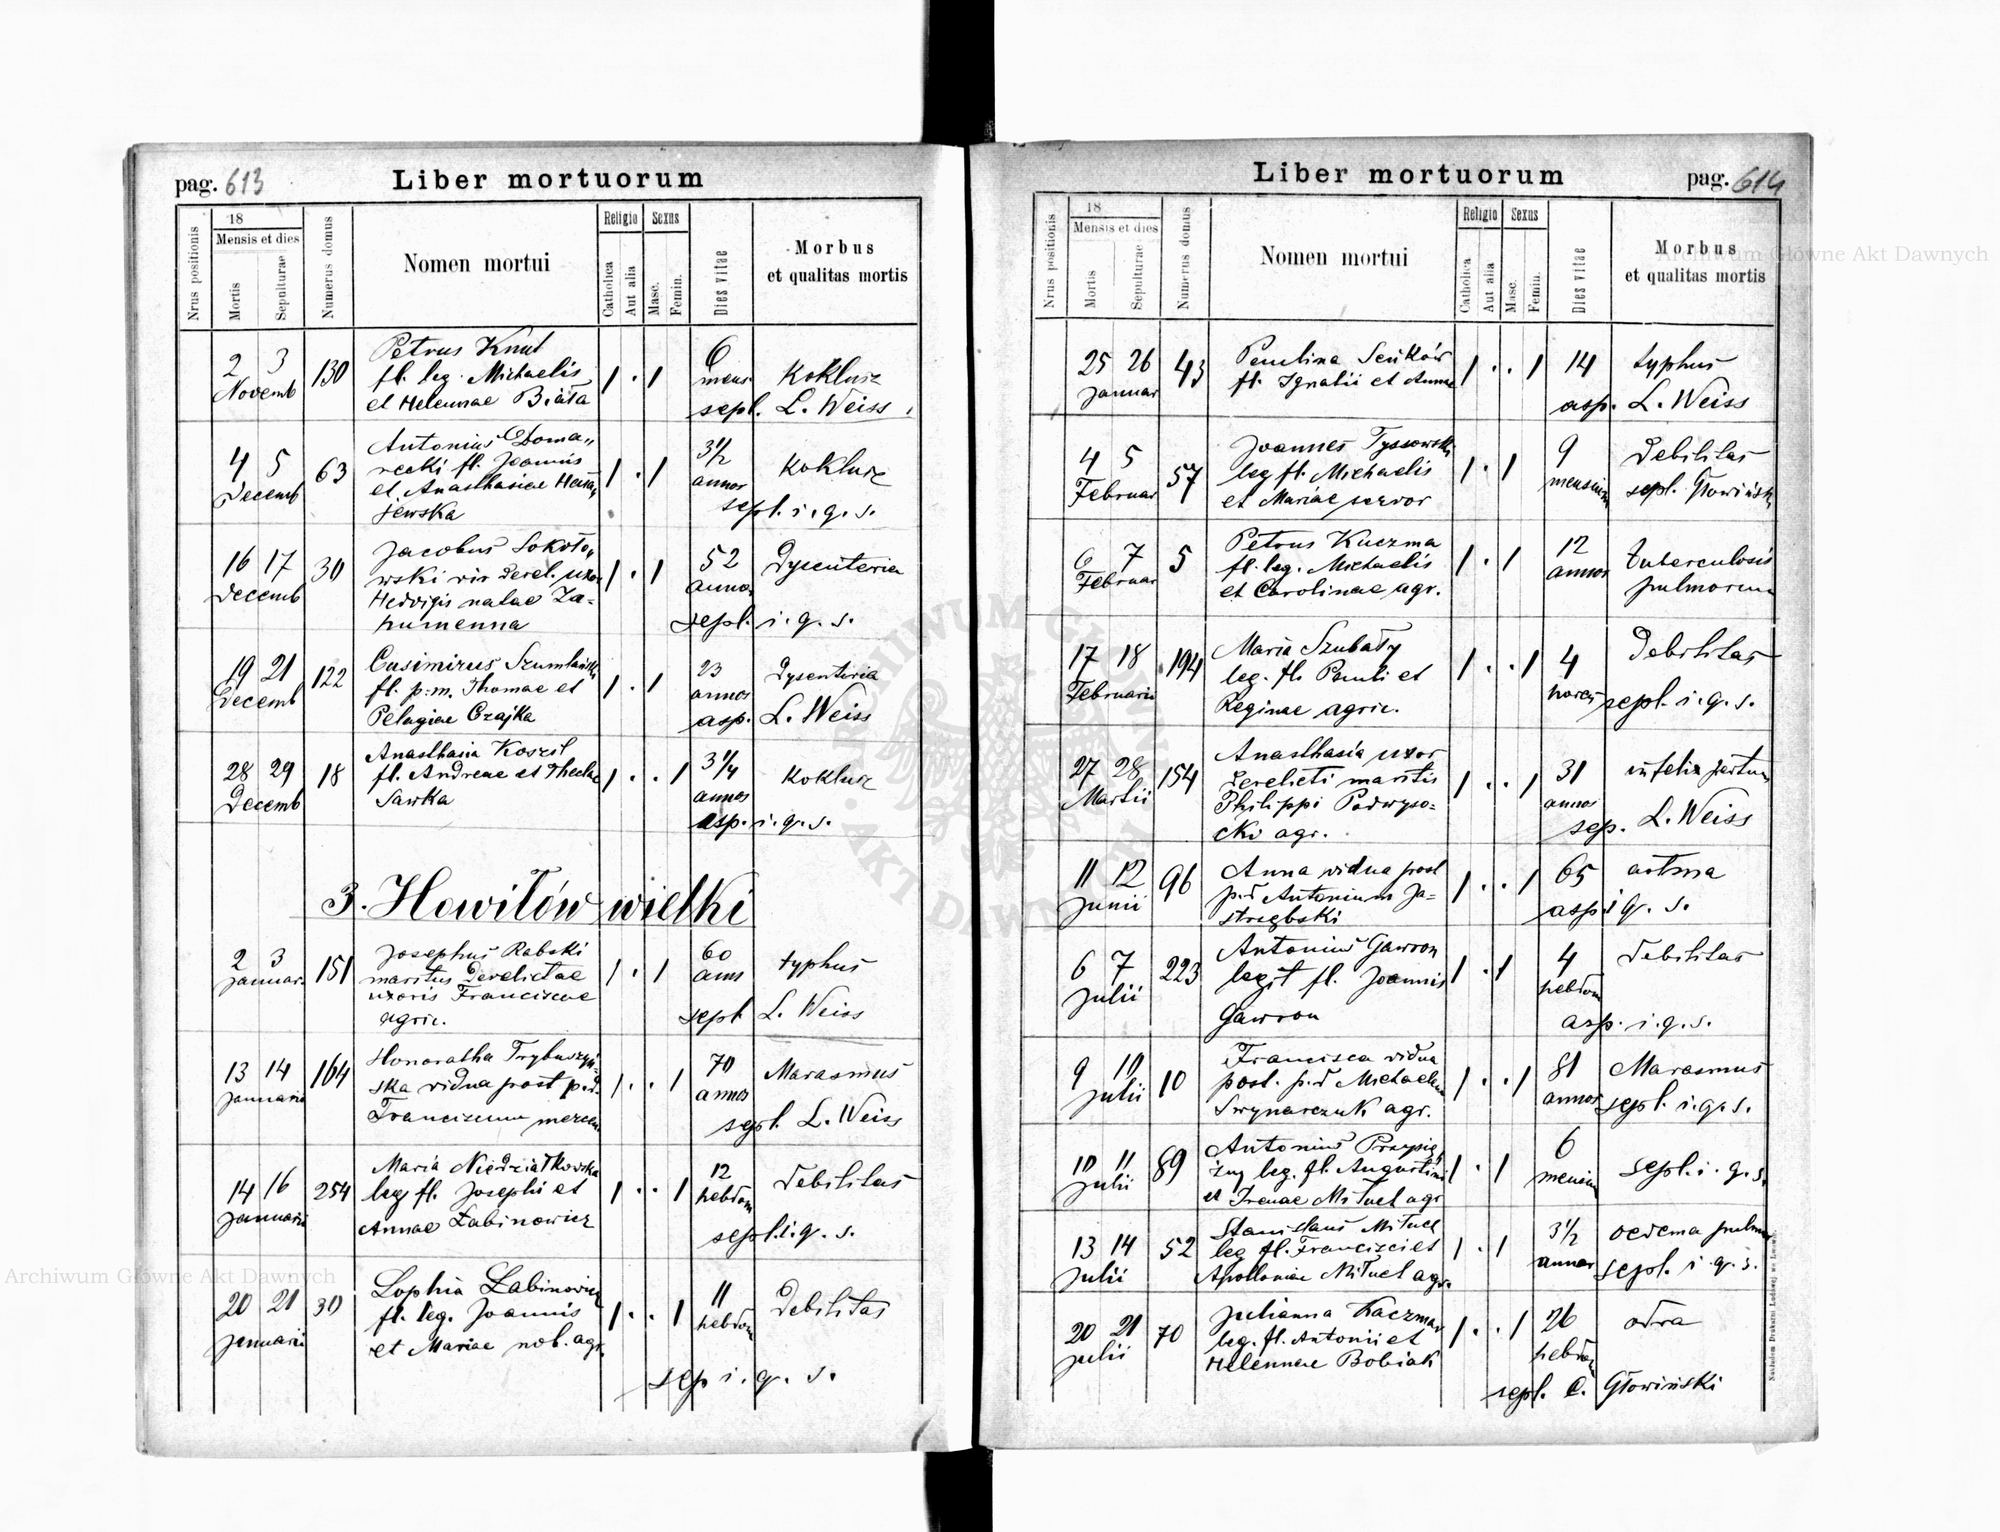 pag. 613
Liber mortuorum
Nrus positionis
18
Mensis et dies
Mortis
Sepulturae
Numerus domus
Nomen mortui
Religio
Catholica
Aut alia
Sexus
Masc.
Femin.
Dies vitae
Morbus
et qualitas mortis
2 3
Novemb
130
Petrus Knut
fl. leg. Michaelis
et Helennae Biała
1 . 1
6
mens.
Koklusz
sepl. L. Weiss
4 5
Decemb
63
Antonius Doma„
recki fl. Joannis
et Anasthasiae
jewska
1 . 1
3 1/2
annor
Koklusz
sepl. i. q. s.
16 17
Decemb
30
Jacobus Sokoło„
wski vir derel. uxor
Hedvigis natae Za-
humenna
1 . 1
52
annos
Dysenteria
sepl. i. q. s.
19 21
Decemb
122
Casimirus Szumlański
fl. p. m. Thomae et
Pelagiae Czajka
1 . 1
23
annos
Dysenteria
asp. L. Weiss
28 29
Decemb
18
Anasthasia Koszil
fl. Andreae et Theclae
Sawka
1 . . 1
3 1/4
annos
Koklusz
asp. i. q. s.
3. Howiłów wielki
2 3
Januar.
151
Josephus Rabski
maritus Derelictae
uxoris Franciscae
agric.
1 . 1
60
anns
typhus
sepl L. Weiss
13 14
Januarii
164
Honoratha Trybuszyń-
ska vidua post p. d.
Franciscum mercen.
1 . . 1
70
annos
Marasmus
sepl. L. Weiss
14 16
Januarii
254
Maria Niedziałkowska
leg fl. Josephi et
Annae Łabinowicz
1 . . 1
12
hebdom
Debilitas
sepl. i. q. s.
20 21
Januarii
30
Sophia Łabinowicz
fl. leg. Joannis
et Mariae nob. agr.
1 . . 1
11
hebdom
Debilitas
sep i. q. s.
pag. 614
Liber mortuorum
Nrus positionis
18
Mensis et dies
Mortis
Sepulturae
Numerus domus
Nomen mortui
Religio
Catholica
Aut alia
Sexus
Masc.
Femin.
Dies vitae
Morbus
et qualitas mortis
25 26
Januar
43
Paulina Seńków
fl. Ignatii et Annae
1 . . 1
14
typhus
asp. L. Weiss
4 5
Februar
57
Joannes Tyssowski
leg fl. Michaelis
et Mariae servor
1 . 1
9
mensium
Debilitas
sepl. Głowiński
6 7
Februar
5
Petrus Kuczma
fl. leg. Michaelis
et Carolinae agr.
1 . 1
12
annor
tuberculosis
pulmorum
17 18
Februarii
194
Maria Szubały
leg. fl. Pauli et
Reginae agric.
1 . . 1
4
horas
Debilitas
sepl. i. q. s.
27 28
Martii
154
Anasthasia uxor
derelicti maritis
Philippi Podwyso-
cki agr.
1 . . 1
31
annos
infelix partus
sep. L. Weiss
11 12
Junii
96
Anna vidua post
p. d Antonium Ja-
strzębski
1 . . 1
65
astma
asp i q. s.
6 7
Julii
223
Antonius Gawron
legit fl. Joannis
Gawron
1 . 1
4
hebdom
Debilitas
asp. i. q. s.
9 10
Julii
10
Francisca vidua
post. p. d Michaelem
Swynarczuk agr.
1 . . 1
81
annos
Marasmus
sepl. i. q. s.
10 11
Julii
89
Antonius Przysię„
żny leg. fl. Augustini
et Irenae Mituel agr
1 . 1
6
mensium
sepl. i. q. s.
13 14
Julii
52
Stanislaus Mituel
leg fl. Francisci et
Apolloniae Mituel agr.
1 . 1
3 1/2
annor
oedema pulmon
sepl. i. q. s.
20 21
Julii
70
Julianna Kaczmar
leg. fl. Antonii et
Helennae Bobiak
1 . . 1
26
hebdom
odra
sepl. C. Głowiński
Nakładem Drukarni Ludowej we Lwowie.
Archiwum Główne Akt Dawnych
Archiwum Główne Akt Dawnych
ARCHIWUM GŁÓWNE
AKT DAWNYCH